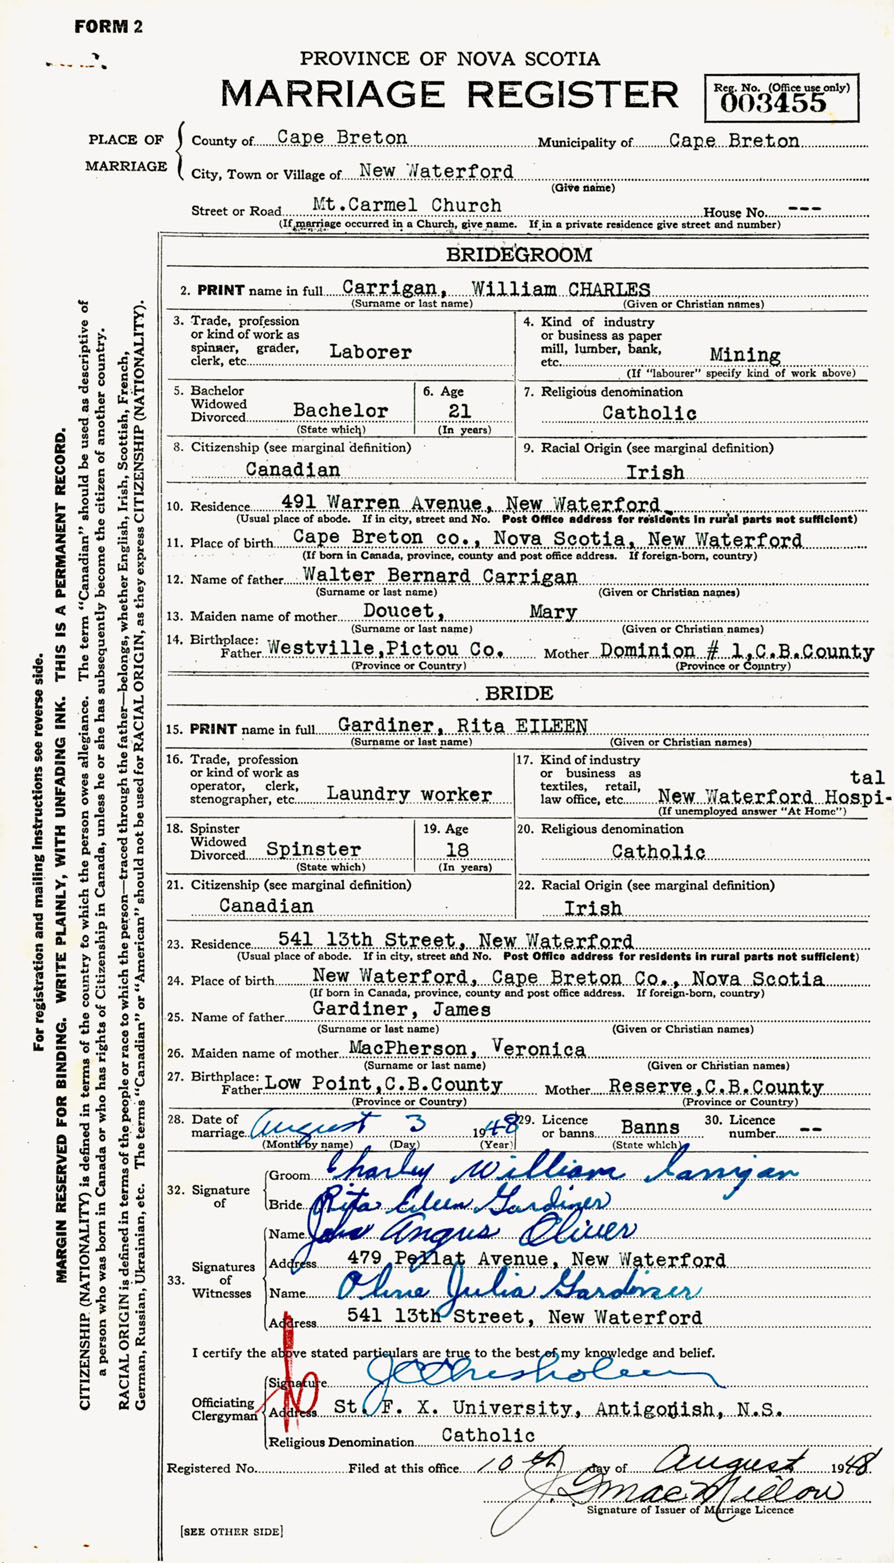 FORM 2
PROVINCE OF NOVA SCOTIA
MARRIAGE REGISTER
Reg. No. (Office use only)
003455
PLACE OF MARRIAGE
County of Cape Breton Municipality of Cape Breton
City, Town or Village of New Waterford
(Give name)
Street or Road Mt.Carmel Church House No. ---
(If marriage occurred in a Church, give name. If in a private residence give street and number)
BRIDEGROOM
2. PRINT name in full Carrigan, William CHARLES
(Surname or last name) (Given or Christian names)
3. Trade, profession or kind of work as spinner, grader, clerk, etc. Laborer
4. Kind of industry or business as paper mill, lumber, bank, etc. Mining
(If "labourer" specify kind of work above)
5. Bachelor Widowed Divorced Bachelor
(State which)
6. Age 21
(In years)
7. Religious denomination
Catholic
8. Citizenship (see marginal definition)
Canadian
9. Racial Origin (see marginal definition)
Irish
10. Residence 491 Warren Avenue, New Waterford
(Usual place of abode. If in city, street and No. Post Office address for residents in rural parts not sufficient)
11. Place of birth Cape Breton co., Nova Scotia, New Waterford
(If born in Canada, province, county and post office address. If foreign-born, country)
12. Name of father Walter Bernard Carrigan
(Surname or last name) (Given or Christian names)
13. Maiden name of mother Doucet, Mary
(Surname or last name) (Given or Christian names)
14. Birthplace: Father Westville,Pictou Co. Mother Dominion # 1,C.B.County
(Province or Country) (Province or Country)
BRIDE
15. PRINT name in full Gardiner, Rita EILEEN
(Surname or last name) (Given or Christian names)
16. Trade, profession or kind of work as operator, clerk, stenographer, etc. Laundry worker
17. Kind of industry or business as textiles, retail, law office, etc. New Waterford Hospi-
tal
(If unemployed answer "At Home")
18. Spinster Widowed Divorced Spinster
(State which)
19. Age 18
(In years)
20. Religious denomination
Catholic
21. Citizenship (see marginal definition)
Canadian
22. Racial Origin (see marginal definition)
Irish
23. Residence 541 13th Street, New Waterford
(Usual place of abode. If in city, street and No. Post Office address for residents in rural parts not sufficient)
24. Place of birth New Waterford, Cape Breton Co., Nova Scotia
(If born in Canada, province, county and post office address. If foreign-born, country)
25. Name of father Gardiner, James
(Surname or last name) (Given or Christian names)
26. Maiden name of mother MacPherson, Veronica
(Surname or last name) (Given or Christian names)
27. Birthplace: Father Low Point,C.B.County Mother Reserve,C.B.County
(Province or Country) (Province or Country)
28. Date of marriage August 3 1948 29. Licence or banns Banns 30. Licence number --
(Month by name) (Day) (Year) (State which)
32. Signature of
Groom Charley William Carrigan
Bride Rita Eileen Gardiner
33. Signatures of Witnesses
Name John Angus Oliver
Address 479 Pellat Avenue, New Waterford
Name Olive Julia Gardiner
Address 541 13th Street, New Waterford
I certify the above stated particulars are true to the best of my knowledge and belief.
Officiating Clergyman
Signature J C Chisholm
Address St. F. X. University, Antigonish, N.S.
Religious Denomination Catholic
Registered No. Filed at this office 10th day of August 1948
J. G. MacMillan
Signature of Issuer of Marriage Licence
[SEE OTHER SIDE]
For registration and mailing instructions see reverse side.
MARGIN RESERVED FOR BINDING. WRITE PLAINLY, WITH UNFADING INK. THIS IS A PERMANENT RECORD.
CITIZENSHIP (NATIONALITY) is defined in terms of the country to which the person owes allegiance. The term "Canadian" should be used as descriptive of
a person who was born in Canada or who has rights of Citizenship in Canada, unless he or she has subsequently become the citizen of another country.
RACIAL ORIGIN is defined in terms of the people or race to which the person—traced through the father—belongs, whether English, Irish, Scottish, French,
German, Russian, Ukrainian, etc. The terms "Canadian" or "American" should not be used for RACIAL ORIGIN, as they express CITIZENSHIP (NATIONALITY).